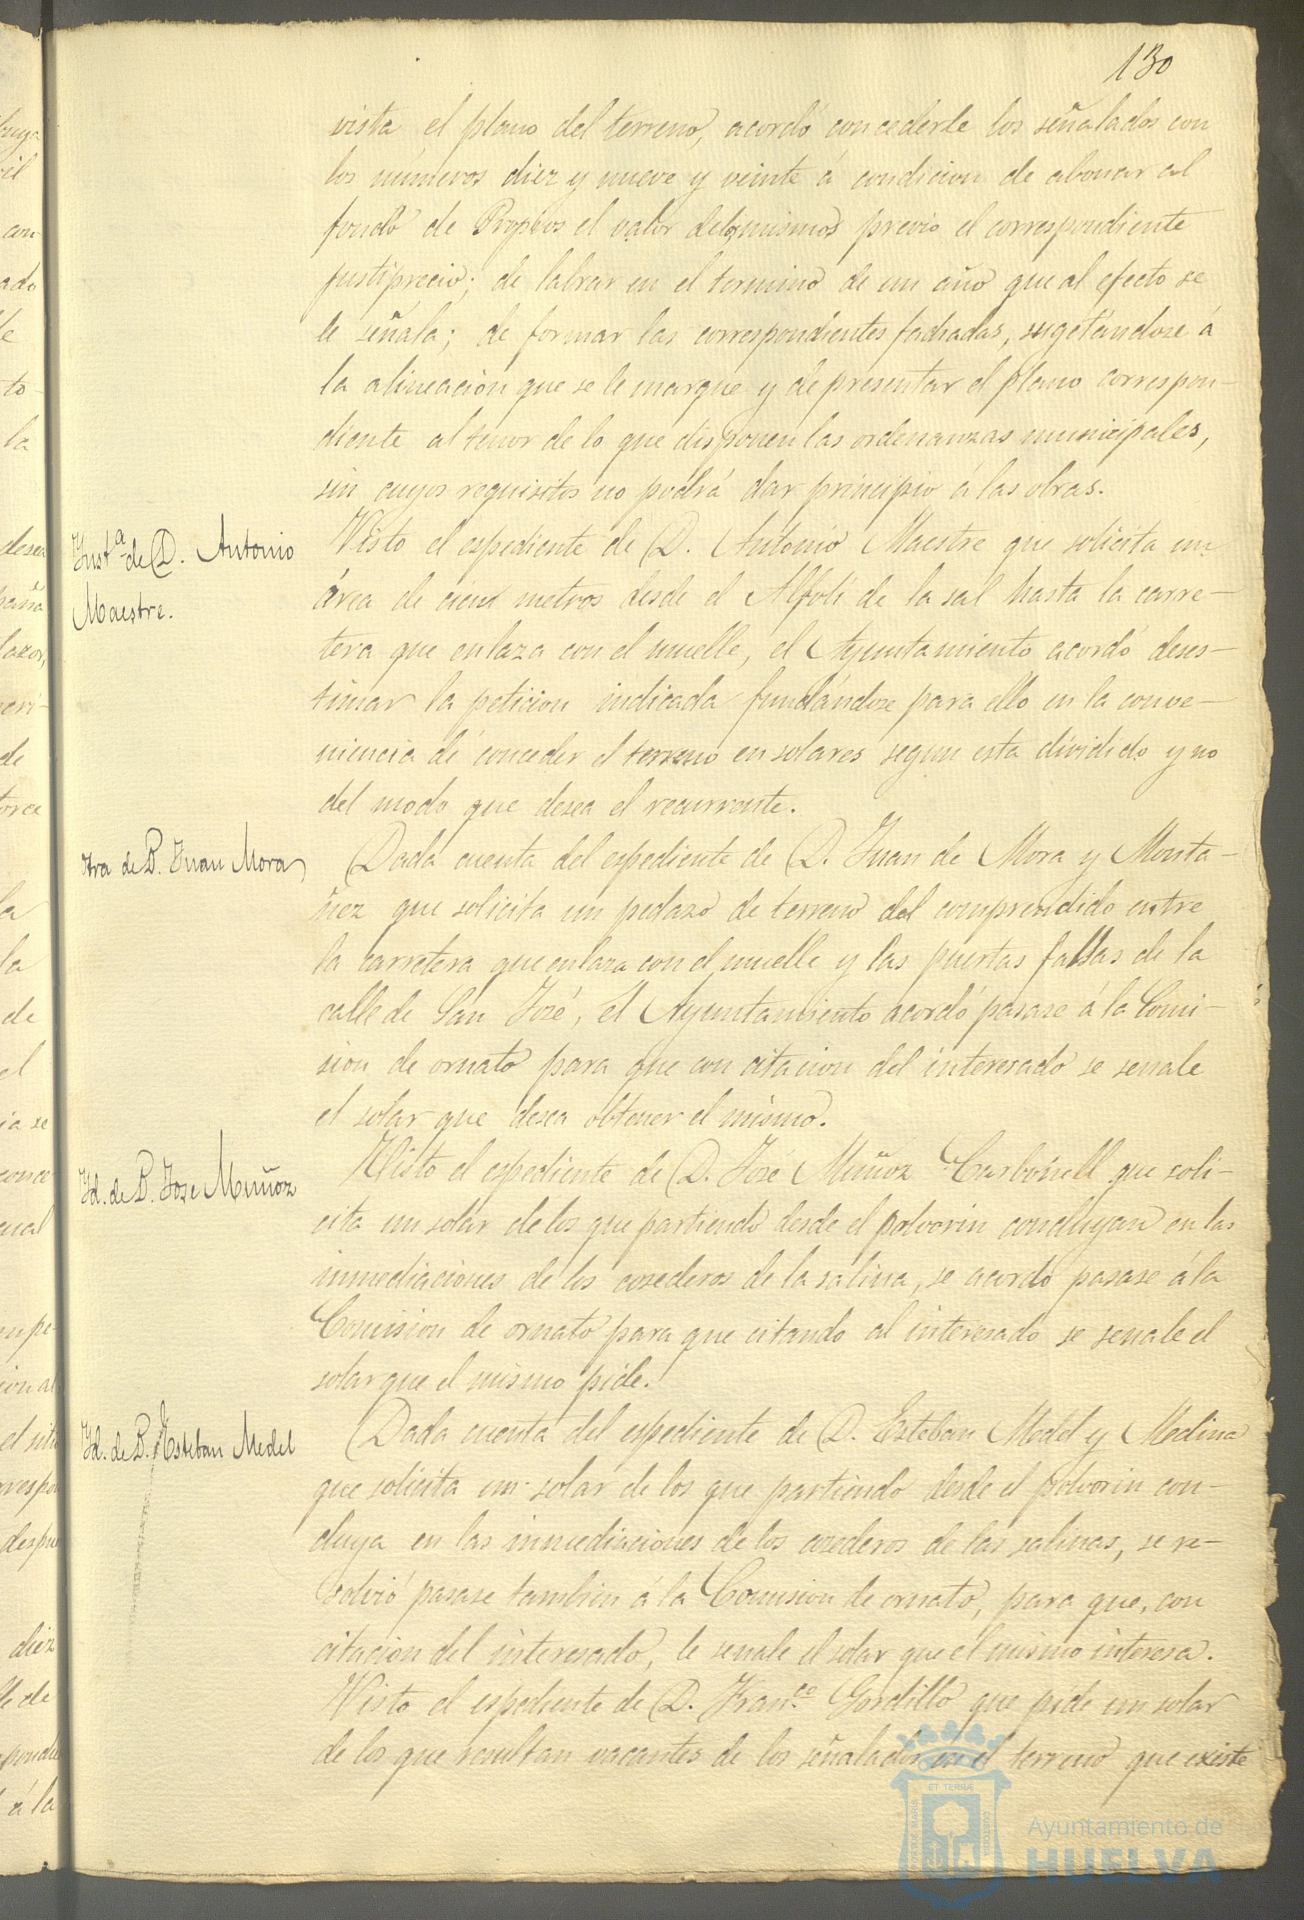 130
vista el plano del terreno, acordó concederle los señalados con
los números diez y nueve y veinte á condicion de abonar al
fondo de Propios el valor delosmismos previo el correspondiente
justiprecio; de labrar en el termino de un año que al efecto se
le señala; de formar las correspondientes fachadas, sugetándose á
la alineacion que se le marque y de presentar el plano correspon-
diente al tenor de lo que disponen las ordenanzas municipales,
sin cuyos requisitos no podrá dar principio á las obras.
Inst.a de D. Antonio
Maestre.
Visto el espediente de D. Antonio Maestre que solicita un
área de cien metros desde el Alfolí de la sal hasta la carre-
tera que enlaza con el muelle, el Ayuntamiento acordó deses-
timar la peticion indicada fundándose para ello en la conve-
niencia de conceder el terreno en solares segun esta dividido y no
del modo que desea el recurrente.
Otra de D. Juan Mora
Dada cuenta del espediente de D. Juan de Mora y Monta-
ñez que solicita un pedazo de terreno del comprendido entre
la carretera que enlaza con el muelle y las puertas falsas de la
calle de San José, el Ayuntamiento acordó pasase á la Comi-
sion de ornato para que con citacion del interesado se senale
el solar que desea obtener el mismo.
Yd. de D. Jose Muñoz
Visto el espediente de D. Jose Muñoz Carbonell que soli-
cita un solar de los que partiendo desde el polvorin concluyan en las
inmediaciones de los cosederos de la salina, se acordó pasase á la
Comision de ornato para que citando al interesado se senale el
solar que el mismo pide.
Yd. de D. Esteban Medel
Dada cuenta del espediente de D. Esteban Medel y Medina
que solicita un solar de los que partiendo desde el polvorin con-
cluya en las inmediaciones de los cosederos de las salinas, se re-
solvió pasase tambien á la Comision de ornato, para que, con
citacion del interesado, le senale el solar que el mismo interesa.
Visto el espediente de D. Fran.co Gordillo que pide un solar
de los que resultan vacantes de los señalados en el terreno que existe
Ayuntamiento de
HUELVA